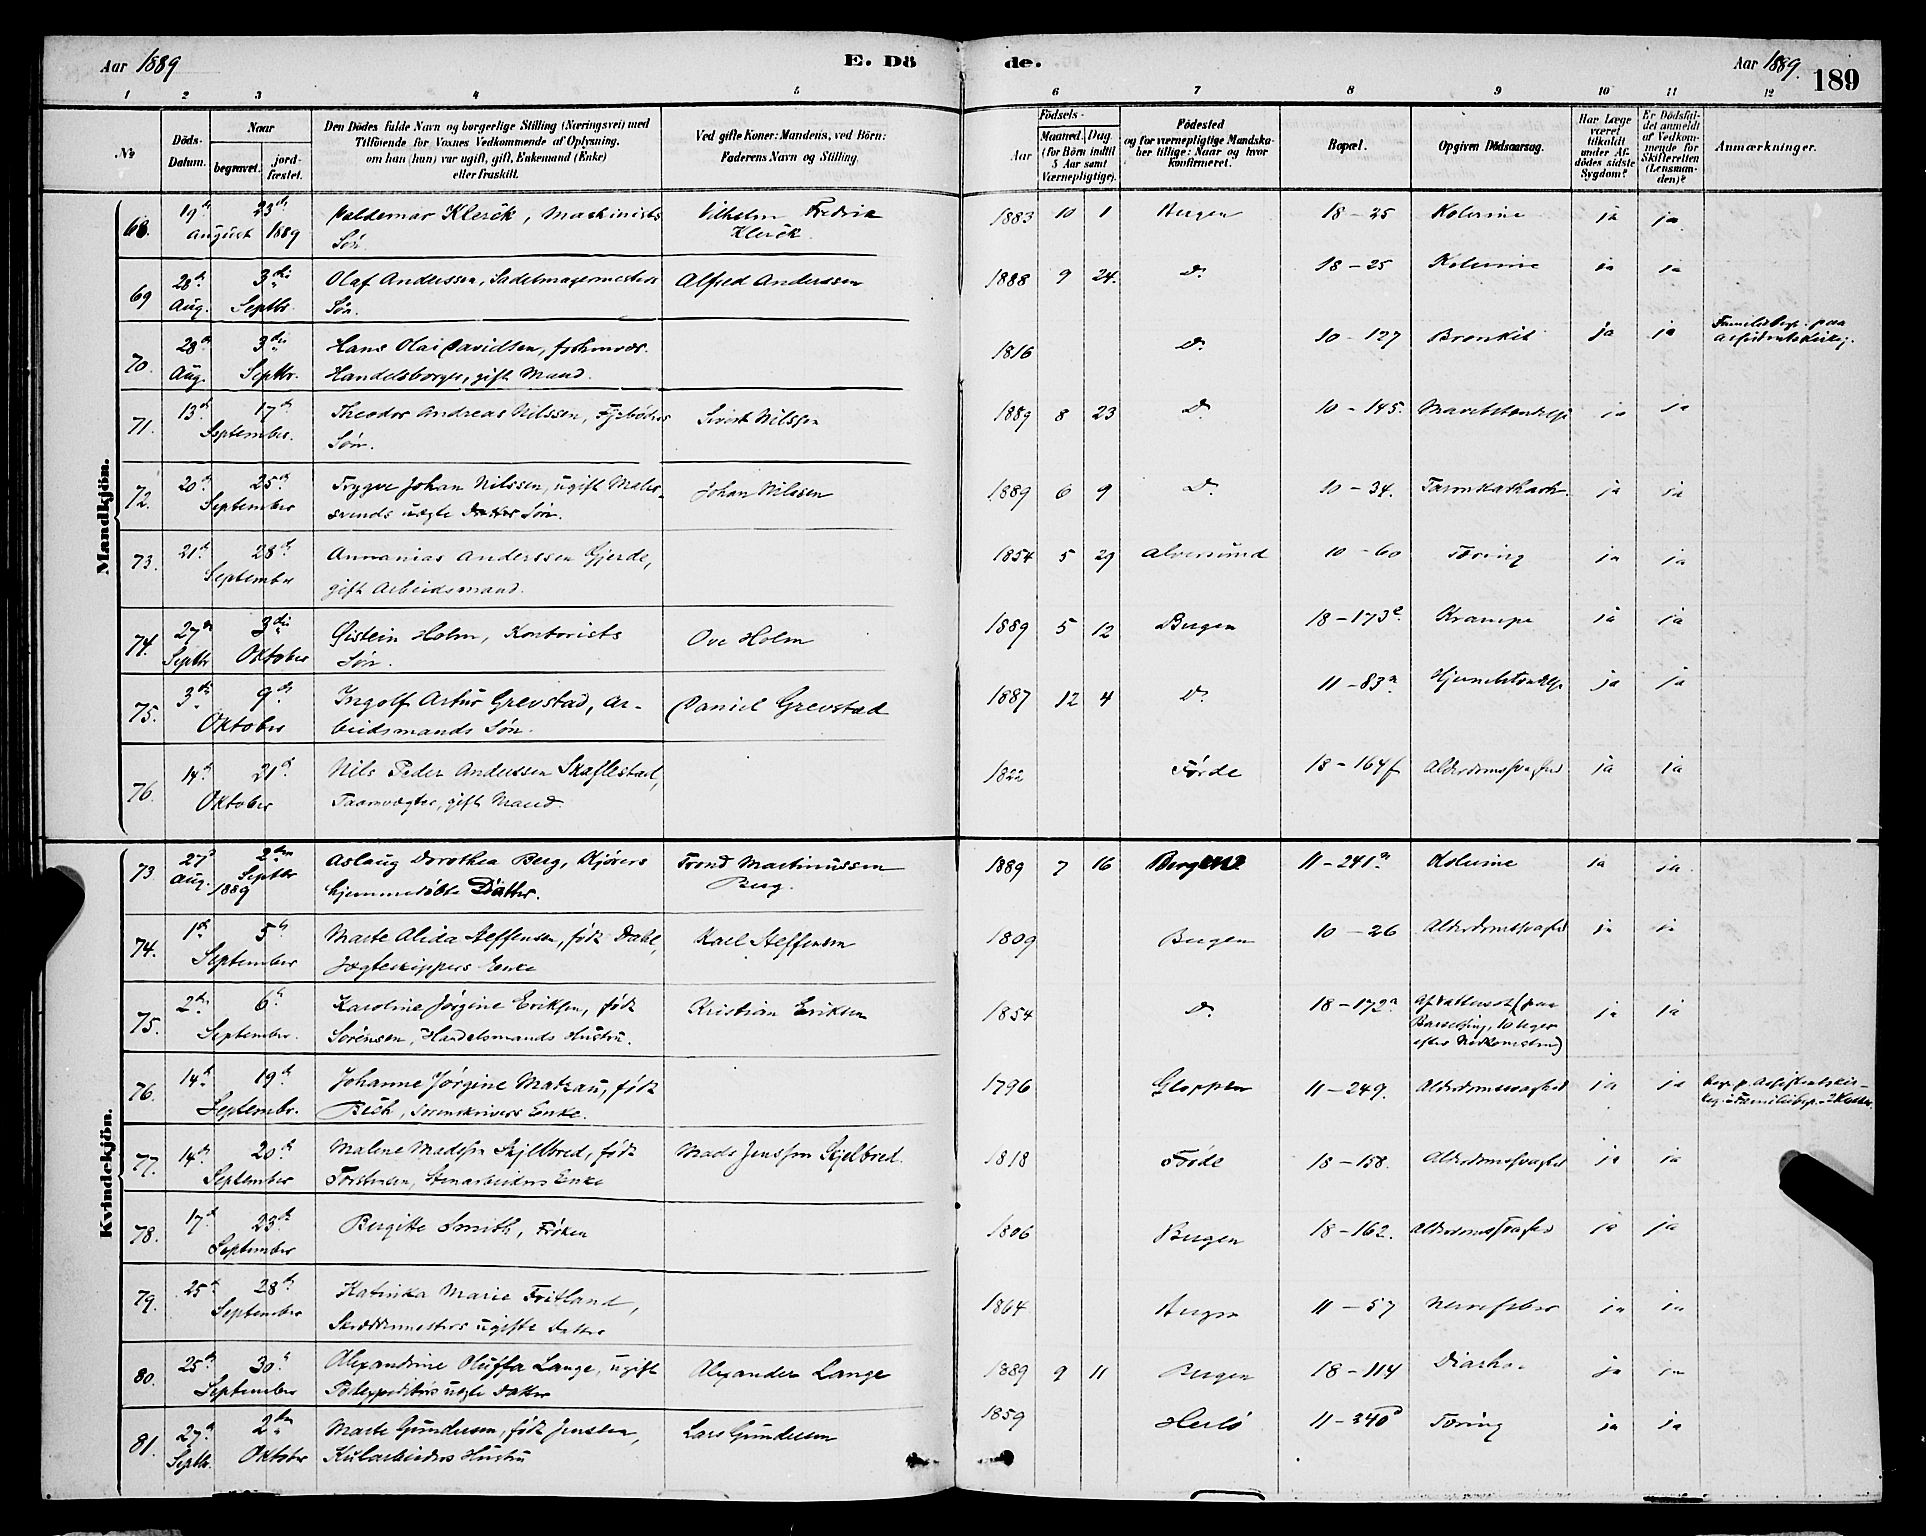 Aar 1889
E. Dö
de.
Aar 1889.
189
1 2 3 4 5 6 7 8 9 10 11 12
No
Döds-
Datum.
Naar
begravet.
jord-
fæstet.
Den Dödes fulde Navn og borgerlige Stilling (Næringsvei) med
Tilföiende for Voxnes Vedkommende af Oplysning,
om han (hun) var ugift, gift, Enkemand (Enke)
eller fraskilt.
Ved gifte Koner: Mandens, ved Börn:
Faderens Navn og Stilling.
Födsels-
Aar
Maaned. Dag
(for Börn indtil
5 Aar samt
Værnepligtige).
Födested
og for værnepligtige Mandska-
ber tillige: Naar og hvor
konfirmeret.
Bopæl.
Opgiven Dödsaarsag.
Har Læge
været
tilkaldt
under Af-
dödes sidste
Sygdom?
Er Dödsfal-
det anmeldt
af Vedkom-
mende for
Skifteretten
(Lensman-
den)?
Anmærkninger.
Mandkjön.
68. 19de 23de Valdemar Klerck, Maskinists Vilhelm Fredrik 1883 10 1 Bergen 18-25 Kolerine ja ja
August 1889 Søn. Klerck.
69 28de 3die Olaf Anderssen, Sadelmagermesters Alfred Anderssen 1888 9 24. Do 18-25 Kolerine ja ja
Aug. Septbr. Søn.
70. 28de 3die Hans Olai Davidsen, forhenvær. 1816 Do 10-127 Bronkit ja ja Familiebegr. paa
Aug. Septbr. Handelsborger, gift Mand. Assistentskirkeg.
71. 13de 17de Theodor Andreas Nilssen, Sivert Nilssen 1889 8 23 Do 10-145. ja ja
September. Søn.
72. 20de 25de Trygve Johan Nilssen, ugift Maler- Johan Nilssen 1889 6 9 Do 10-34. ja ja
September svends uægte Søn.
73. 21de 28de Annanias Anderssen Gjerde, 1854 5 29 Alversund 10-60 Tæring ja ja
September gift Arbeidsmand.
74. 27de 3die Øistein Holm, Kontorists Ove Holm 1889 5 12 Bergen 18-173e Krampe ja ja
Septbr Oktober Søn.
75. 3die 9de Ingolf Artur Grevstad, Ar- Daniel Grevstad 1887 12 4 Do 11-83a Hjernebetændelse ja ja
Oktober beidsmands Søn.
76. 14de 21de Nils Peder Anderssen Skaflestad, 1822 Førde 18-164f Alderdomssvaghed ja ja
Oktober Taarnvægter, gift Mand.
Kvindekjön.
73 27de 2den Aslaug Dorothea Berg, Kjørers Trond Martinussen 1889 7 16 Bergen 11-241a Kolerine ja ja
Aug. Septbr 1889 hjemmedøbte Datter. Berg.
74. 1ste 5te Marte Alida Steffensen, født Dahl, Karl Steffensen 1809 Bergen 10-26 Alderdomssvaghed ja ja
September Jægteskippers Enke
75. 2den 6te Karoline Jørgine Eriksen, født Kristian Eriksen 1854 Do 18-172a Af Vattersot (paa ja ja
September. Sørensen, Handelsmands Hustru. Barselseng, 10 uger
efter Nedkomsten)
76. 14de 19de Johanne Jørgine Matzau, født 1796 Gloppen 11-249. Alderdomssvaghed ja ja
Septembr. Bech, Sorenskrivers Enke.
77. 14de 20de Malene Madssen Skjelbred, født Mads Jenssen Skjelbred. 1818 Førde 18-158. Alderdomssvaghed ja ja
September Torstensen, Stenarbeiders Enke
78. 17de 23de Bergitte Smith, Frøken 1806 Bergen 18-162. Alderdomssvaghed ja ja
September
79. 25de 28de Katinka Marie Fritland, 1864 Bergen 11-57 Nervefeber ja ja
September Skræddermesters ugifte Datter
80. 25de 30te Alexandrine Oluffa Lange, ugift Alexander Lange 1889 9 11 Bergen 18-114 ja ja
September Postexpeditørs uægte Datter
81. 27de 2den Marte Gundersen, født Jensten, Lars Gundersen 1859 Herlø 11-340d Tæring ja ja
Septbr. Oktober Kularbeiders Hustru